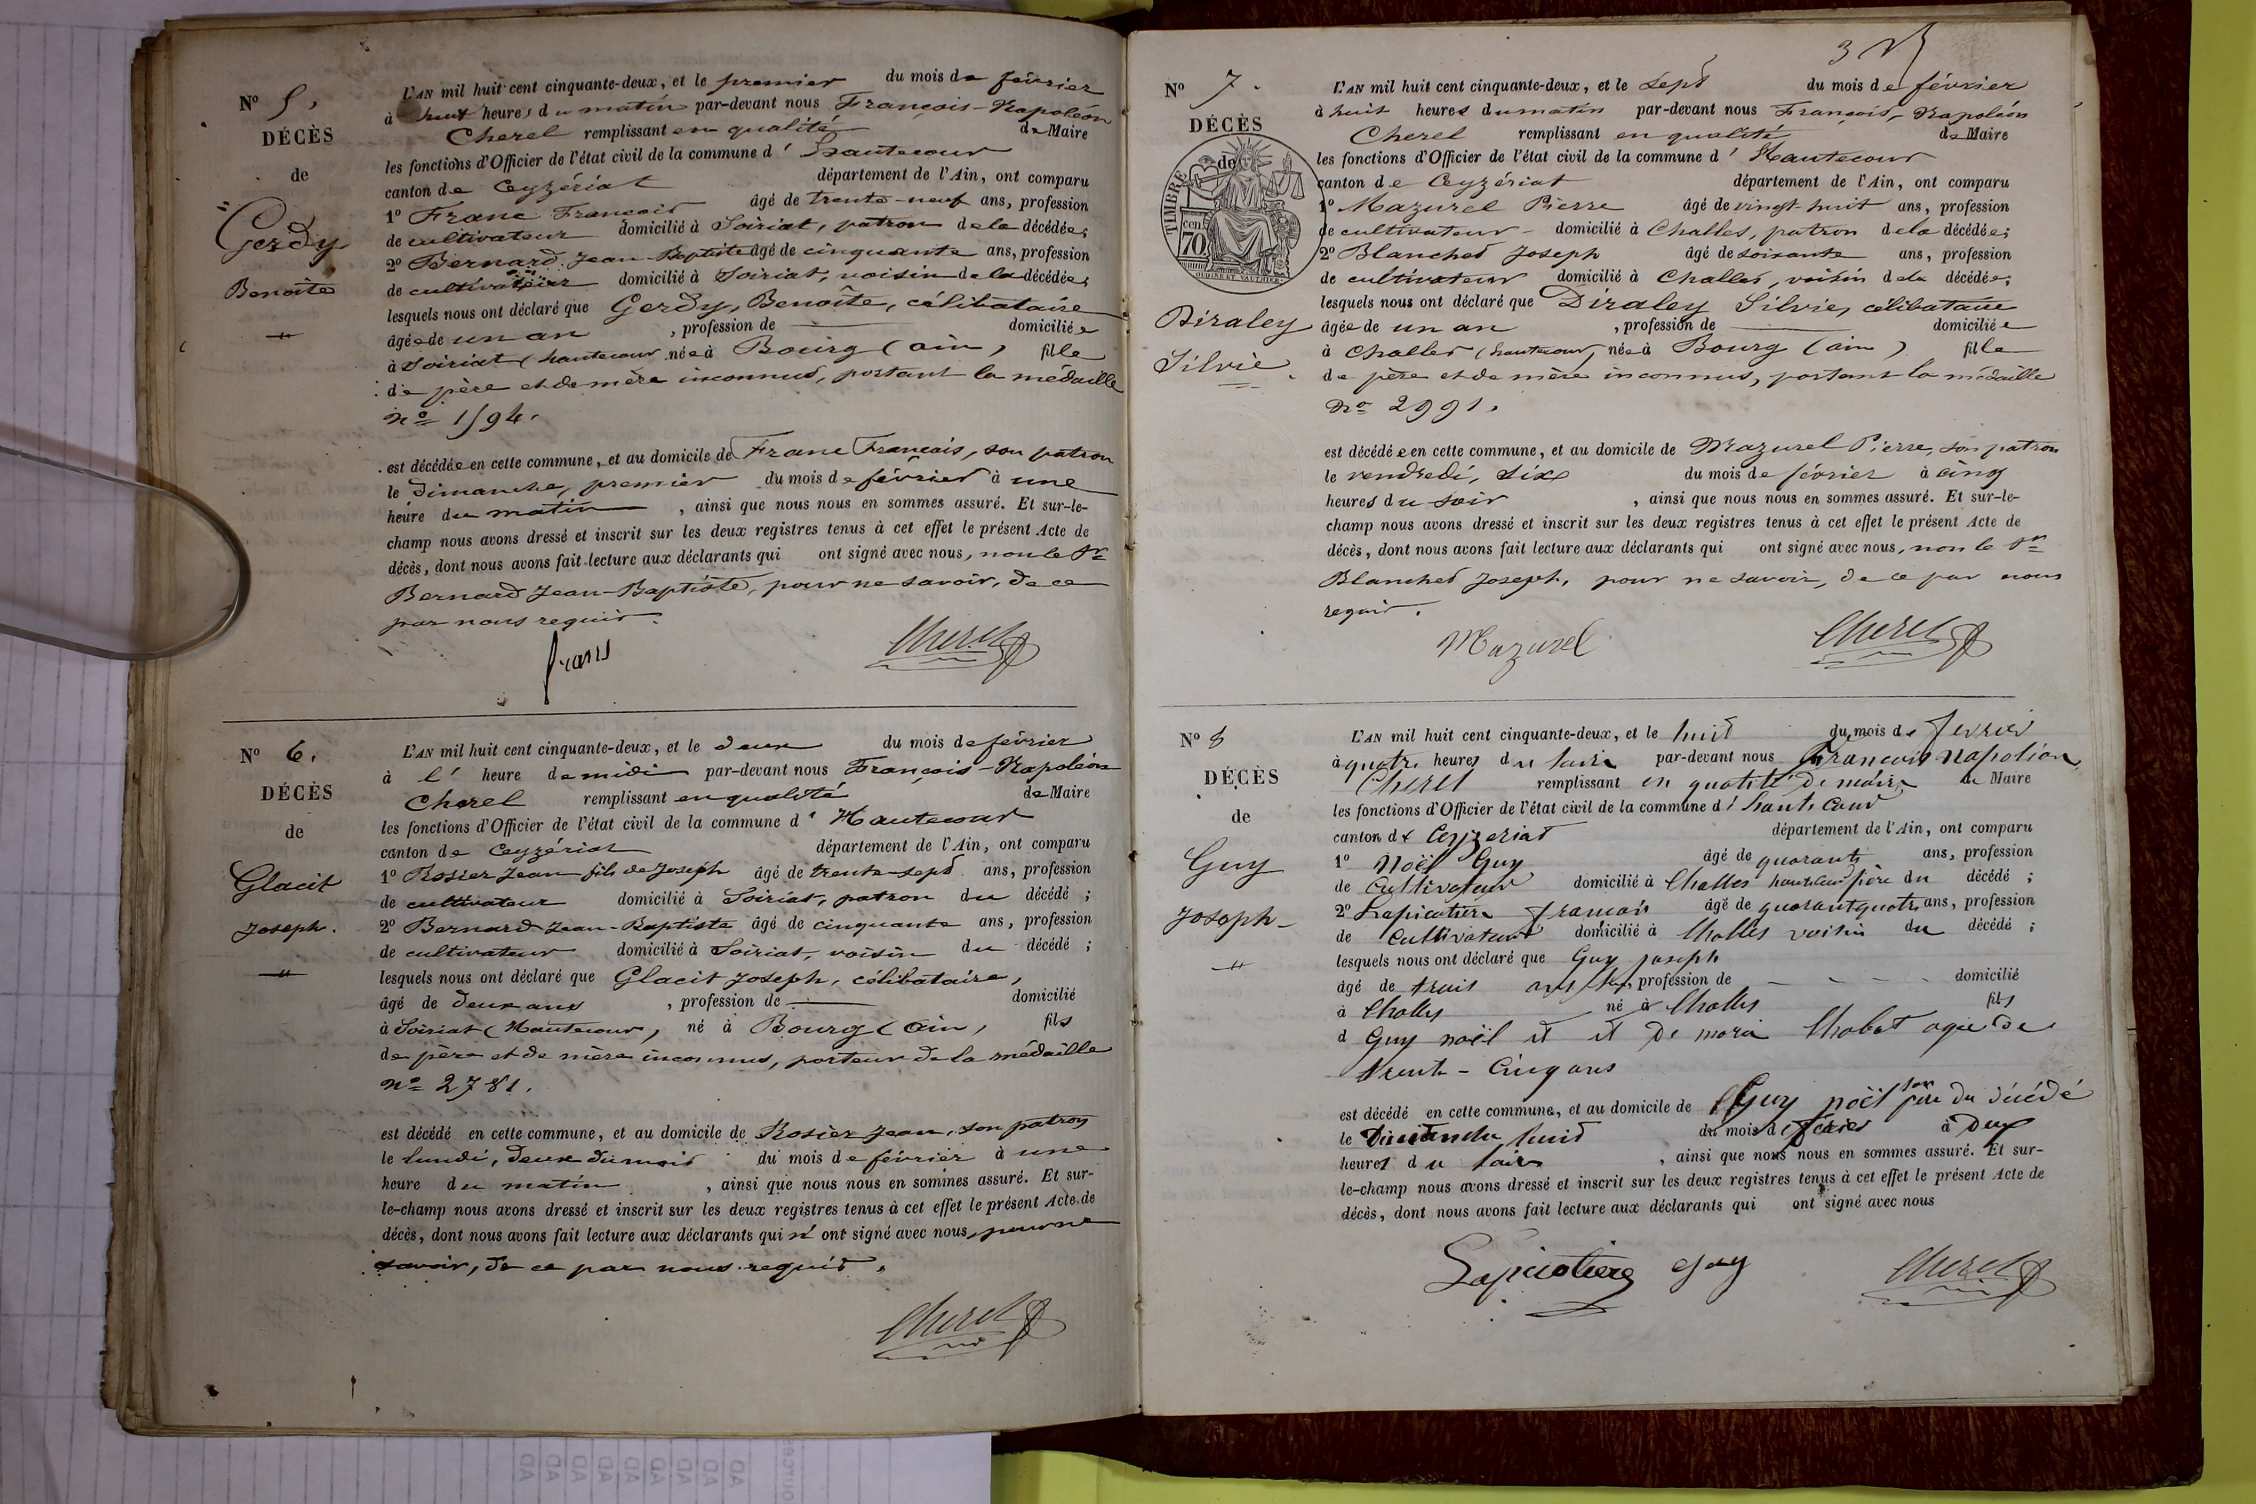 N° 5.
DÉCÈS
de
Gerdy
Benoîte
L'AN mil huit cent cinquante-deux, et le premier du mois de février
à huit heures du matin par-devant nous François-Napoléon
Cherel remplissant en qualité de Maire
les fonctions d'Officier de l'état civil de la commune d' hautecour
canton de Ceyzériat département de l'Ain, ont comparu
1° Franc François âgé de trente-neuf ans, profession
de cultivateur domicilié à Soiriat, patron de la décédée;
2° Bernard Jean-Baptiste âgé de cinquante ans, profession
de cultivateur domicilié à Soiriat, voisin de la décédée;
lesquels nous ont déclaré que Gerdy, Benoîte, célibataire
âgée de un an , profession de domiciliée
à Soiriat (hautecour) née à Bourg (ain) fille
de père et de mère inconnus, portant la médaille
n° 1594.
est décédée en cette commune, et au domicile de Franc François, son patron
le dimanche, premier du mois de février à une
heure du matin , ainsi que nous nous en sommes assuré. Et sur-le-
champ nous avons dressé et inscrit sur les deux registres tenus à cet effet le présent Acte de
décès, dont nous avons fait lecture aux déclarants qui ont signé avec nous, non le Sr
Bernard Jean-Baptiste, pour ne savoir, de ce
par nous requis.
franc Cherel
N° 6.
DÉCÈS
de
Glacit
Joseph.
L'AN mil huit cent cinquante-deux, et le deux du mois de février
à l' heure de midi par-devant nous François-Napoléon
Cherel remplissant en qualité de Maire
les fonctions d'Officier de l'état civil de la commune d' Hautecour
canton de Ceyzériat département de l'Ain, ont comparu
1° Rosier Jean fils de Joseph âgé de trente-sept ans, profession
de cultivateur domicilié à Soiriat, patron du décédé ;
2° Bernard Jean-Baptiste âgé de cinquante ans, profession
de cultivateur domicilié à Soiriat, voisin du décédé ;
lesquels nous ont déclaré que Glacit Joseph, célibataire,
âgé de deux ans , profession de domicilié
à Soiriat (Hautecour), né à Bourg (Ain, fils
de père et de mère inconnus, porteur de la médaille
n° 2781.
est décédé en cette commune, et au domicile de Rosier Jean, son patron
le lundi, deux du mois du mois de février à une
heure du matin , ainsi que nous nous en sommes assuré. Et sur-
le-champ nous avons dressé et inscrit sur les deux registres tenus à cet effet le présent Acte de
décès, dont nous avons fait lecture aux déclarants qui n' ont signé avec nous, pour ne
savoir, de ce par nous requis.
Cherel
3
N° 7.
DÉCÈS
de
TIMBRE
70 cen
Diraley
Silvie.
L'AN mil huit cent cinquante-deux, et le sept du mois de février
à huit heures du matin par-devant nous François-Napoléon
Cherel remplissant en qualité de Maire
les fonctions d'Officier de l'état civil de la commune d' Hautecour
canton de Ceyzériat département de l'Ain, ont comparu
1° Mazurel Pierre âgé de vingt-huit ans, profession
de cultivateur domicilié à Challes, patron de la décédée;
2° Blanchet Joseph âgé de soixante ans, profession
de cultivateur domicilié à Challes, voisin de la décédée;
lesquels nous ont déclaré que Diraley Silvie, célibataire
âgée de un an , profession de domiciliée
à Challes (hautecour) née à Bourg (ain) fille
de père et de mère inconnus, portant la médaille
n° 2991.
est décédée en cette commune, et au domicile de Mazurel Pierre, son patron
le vendredi, six du mois de février à cinq
heures du soir , ainsi que nous nous en sommes assuré. Et sur-le-
champ nous avons dressé et inscrit sur les deux registres tenus à cet effet le présent Acte de
décès, dont nous avons fait lecture aux déclarants qui ont signé avec nous, non le Sr
Blanchet Joseph, pour ne savoir, de ce par nous
requis.
Mazurel Cherel
N° 8
DÉCÈS
de
Guy
Joseph
L'AN mil huit cent cinquante-deux, et le huit du mois de fevrier
à quatre heures du soir par-devant nous François Napoléon
Cherel remplissant en qualité de maire de Maire
les fonctions d'Officier de l'état civil de la commune d' haute cour
canton de Ceyzeriat département de l'Ain, ont comparu
1° Noël Guy âgé de quarante ans, profession
de cultivateur domicilié à Challes hautecour père du décédé ;
2° Lapicotiere francois âgé de quarant quatre ans, profession
de cultivateur domicilié à Challes voisin du décédé ;
lesquels nous ont déclaré que Guy joseph
âgé de trois ans profession de domicilié
à Challes né à Challes fils
d Guy noël et et de maria Chabat agée de
trente-cinq ans
est décédé en cette commune, et au domicile de Guy noël son père du décédé
le Dimanche huit du mois de février à deux
heures du soir , ainsi que nous nous en sommes assuré. Et sur-
le-champ nous avons dressé et inscrit sur les deux registres tenus à cet effet le présent Acte de
décès, dont nous avons fait lecture aux déclarants qui ont signé avec nous
Lapicotiere Guy Cherel